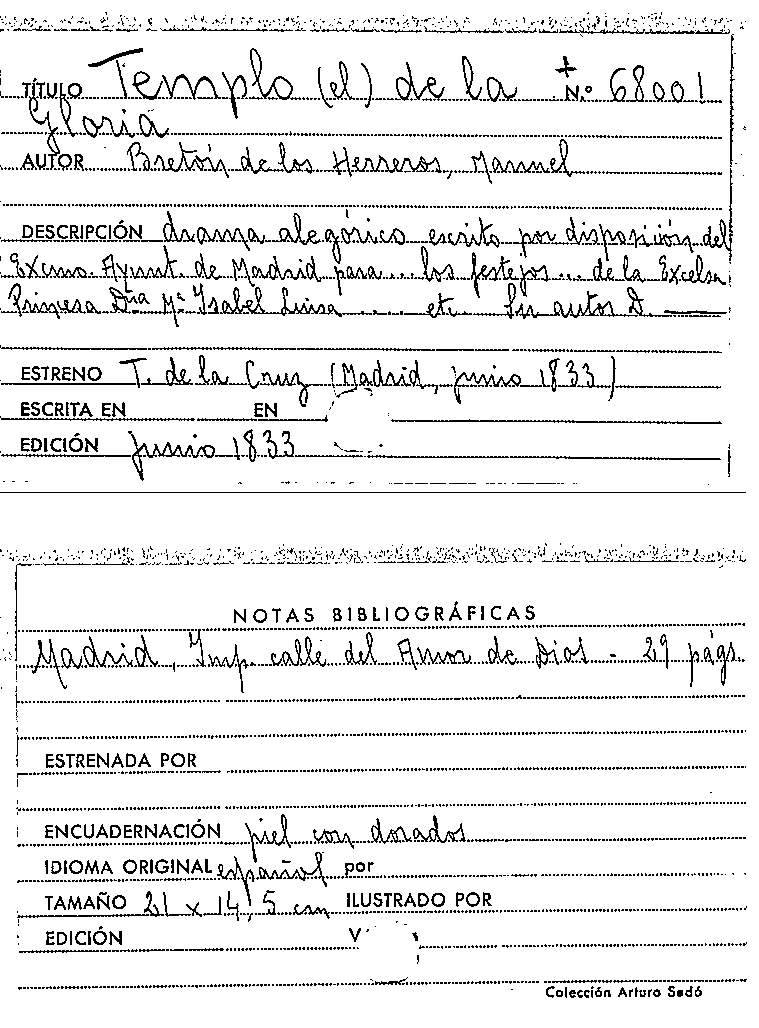 TÍTULO Templo (el) de la + N.º 68001
Gloria
AUTOR Bretón de los Herreros, Manuel
DESCRIPCIÓN drama alegórico escrito por disposición del
Excmo. Ayunt. de Madrid para... los festejos... de la Excelsa
Princesa Dña Mª Isabel Luisa .... etc. Su autor D. ———
ESTRENO T. de la Cruz (Madrid, junio 1833)
ESCRITA EN EN
EDICIÓN junio 1833
NOTAS BIBLIOGRÁFICAS
Madrid, Imp. calle del Amor de Dios - 29 págs.
ESTRENADA POR
ENCUADERNACIÓN piel con dorados
IDIOMA ORIGINAL español por
TAMAÑO 21 x 14,5 cm ILUSTRADO POR
EDICIÓN V
Colección Arturo Sedó